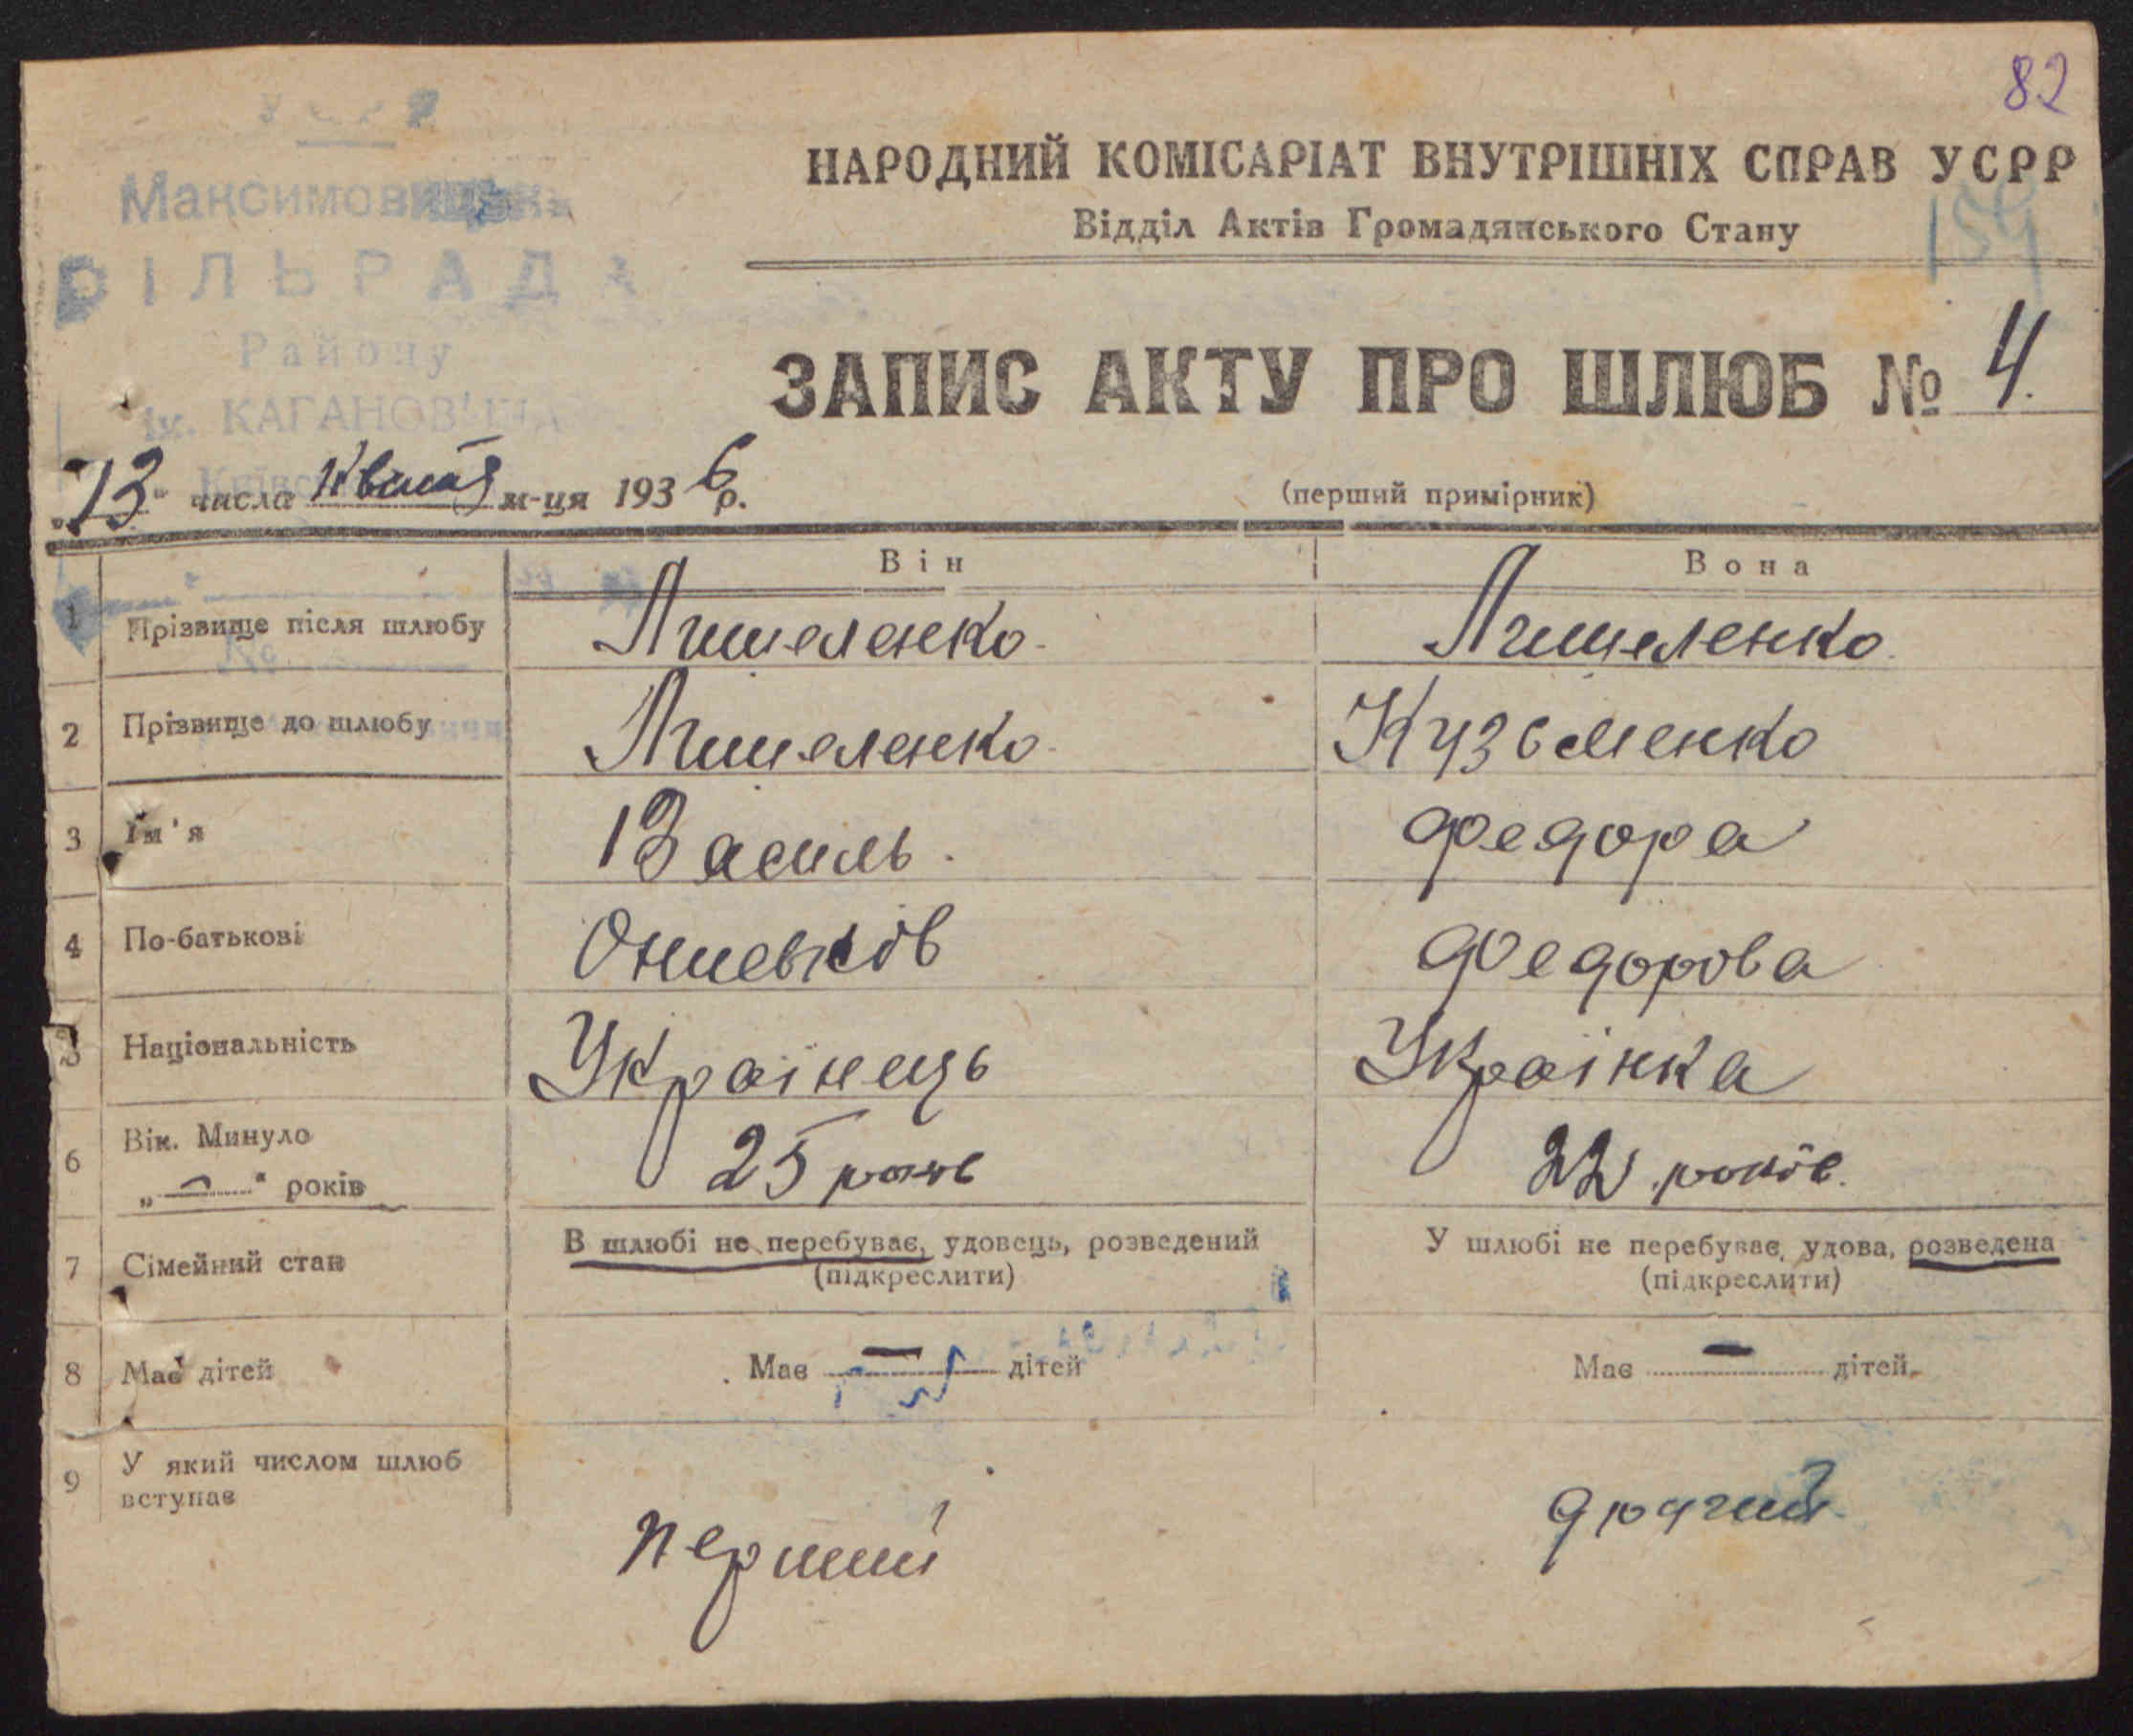 82
НАРОДНИЙ КОМІСАРІАТ ВНУТРІШНІХ СПРАВ УСРР
Відділ Актів Громадянського Стану
159
Максимовицька
СІЛЬРАДА
Району
ім. КАГАНОВИЧА
ЗАПИС АКТУ ПРО ШЛЮБ № 4.
"13" числа Квітня м-ця 1936 р.
(перший примірник)
Він Вона
1 Прізвище після шлюбу
2 Прізвище до шлюбу Кузьменко
3 Ім'я Василь Федора
4 По-батькові Федорова
5 Національність Українець Українка
6 Вік. Минуло 25 років 22 років.
„—" років
7 Сімейний стан В шлюбі не перебуває, удовець, розведений У шлюбі не перебуває, удова, розведена
(підкреслити) (підкреслити)
8 Має дітей Має — дітей Має — дітей
9 У який числом шлюб
вступає
перший другий